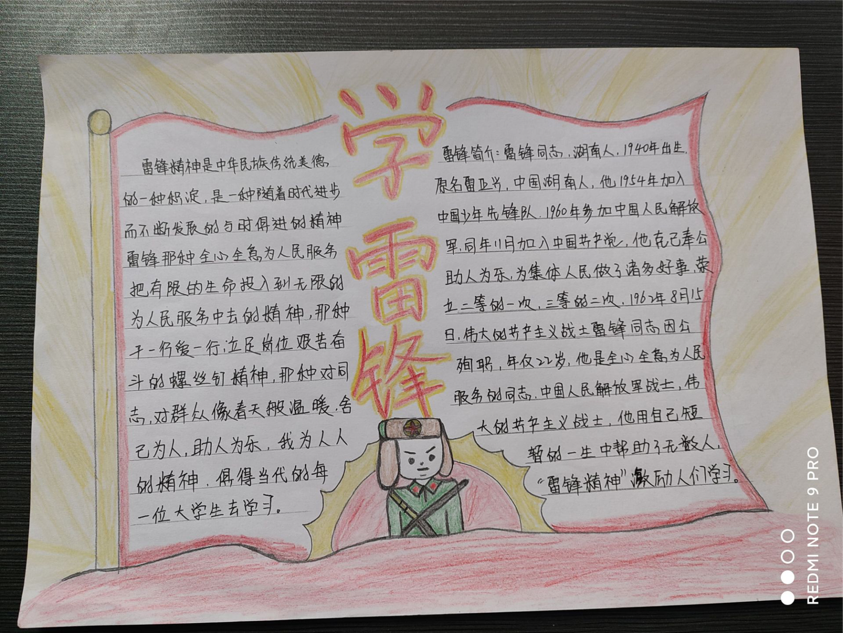 学雷锋
雷锋精神是中华民族传统美德
的一种积淀，是一种随着时代进步
而不断发展的与时俱进的精神
雷锋那种全心全意为人民服务
把有限的生命投入到无限的
为人民服务中去的精神，那种
干一行爱一行，立足岗位艰苦奋
斗的螺丝钉精神，那种对同
志，对群众像春天般温暖，舍
己为人，助人为乐，我为人人
的精神，值得当代的每
一位大学生去学习。
雷锋简介：雷锋同志，湖南人，1940年出生，
原名雷正兴，中国湖南人，他1954年加入
中国少年先锋队，1960年参加中国人民解放
军，同年11月加入中国共产党，他克己奉公
助人为乐，为集体人民做了诸多好事，荣
立二等的一次，三等的二次，1962年8月15
日，伟大的共产主义战士雷锋同志因公
殉职，年仅22岁，他是全心全意为人民
服务的同志，中国人民解放军战士，伟
大的共产主义战士，他用自己短
暂的一生中帮助了无数人，
“雷锋精神”激励人们学习。
REDMI NOTE 9 PRO